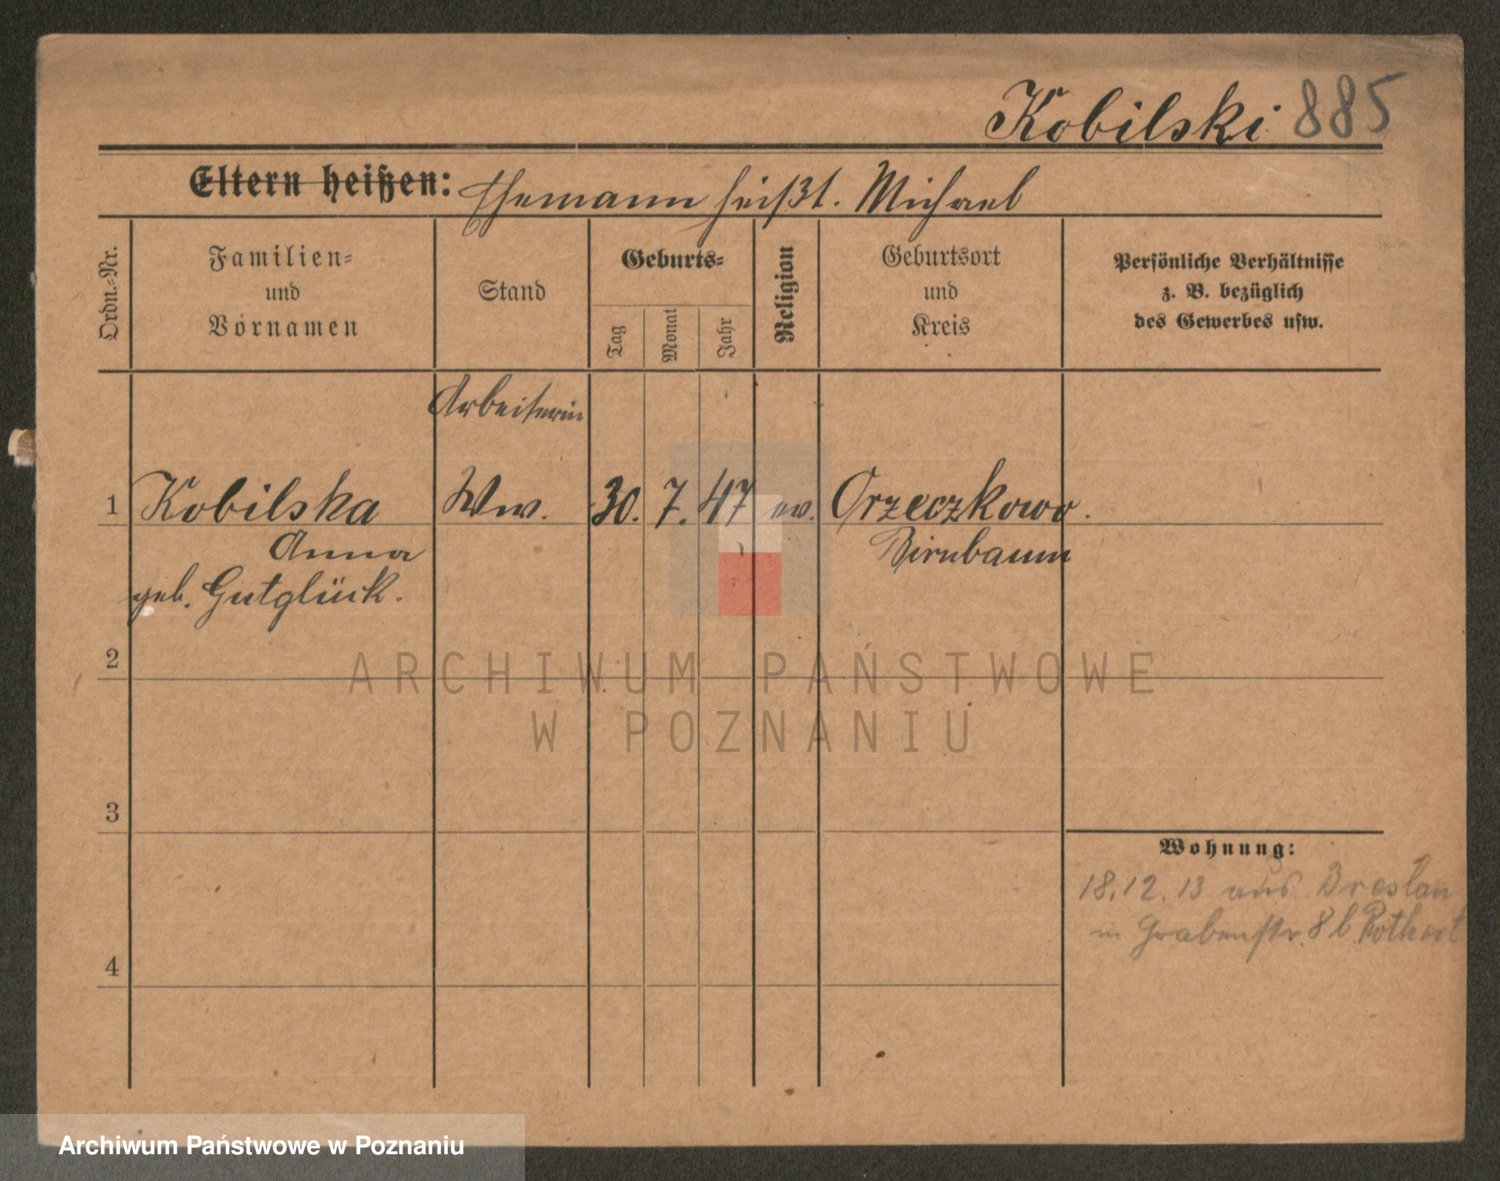 Kobilski 885
Eltern heißen: Ehemann heißt. Michael
Ordn.-Nr.
Familien-
und
Vornamen
Stand
Geburts-
Tag
Monat
Jahr
Religion
Geburtsort
und
Kreis
Persönliche Verhältnisse
z. B. bezüglich
des Gewerbes usw.
Arbeiterin
1 Kobilska Ww. 30. 7. 47 ev. Orzeczkowo.
Anna Birnbaum
geb. Gutglück.
2
ARCHIWUM PAŃSTWOWE
W POZNANIU
3
Wohnung:
18.12.13 aus Breslau
in Grabenstr. 8 b
4
Archiwum Państwowe w Poznaniu